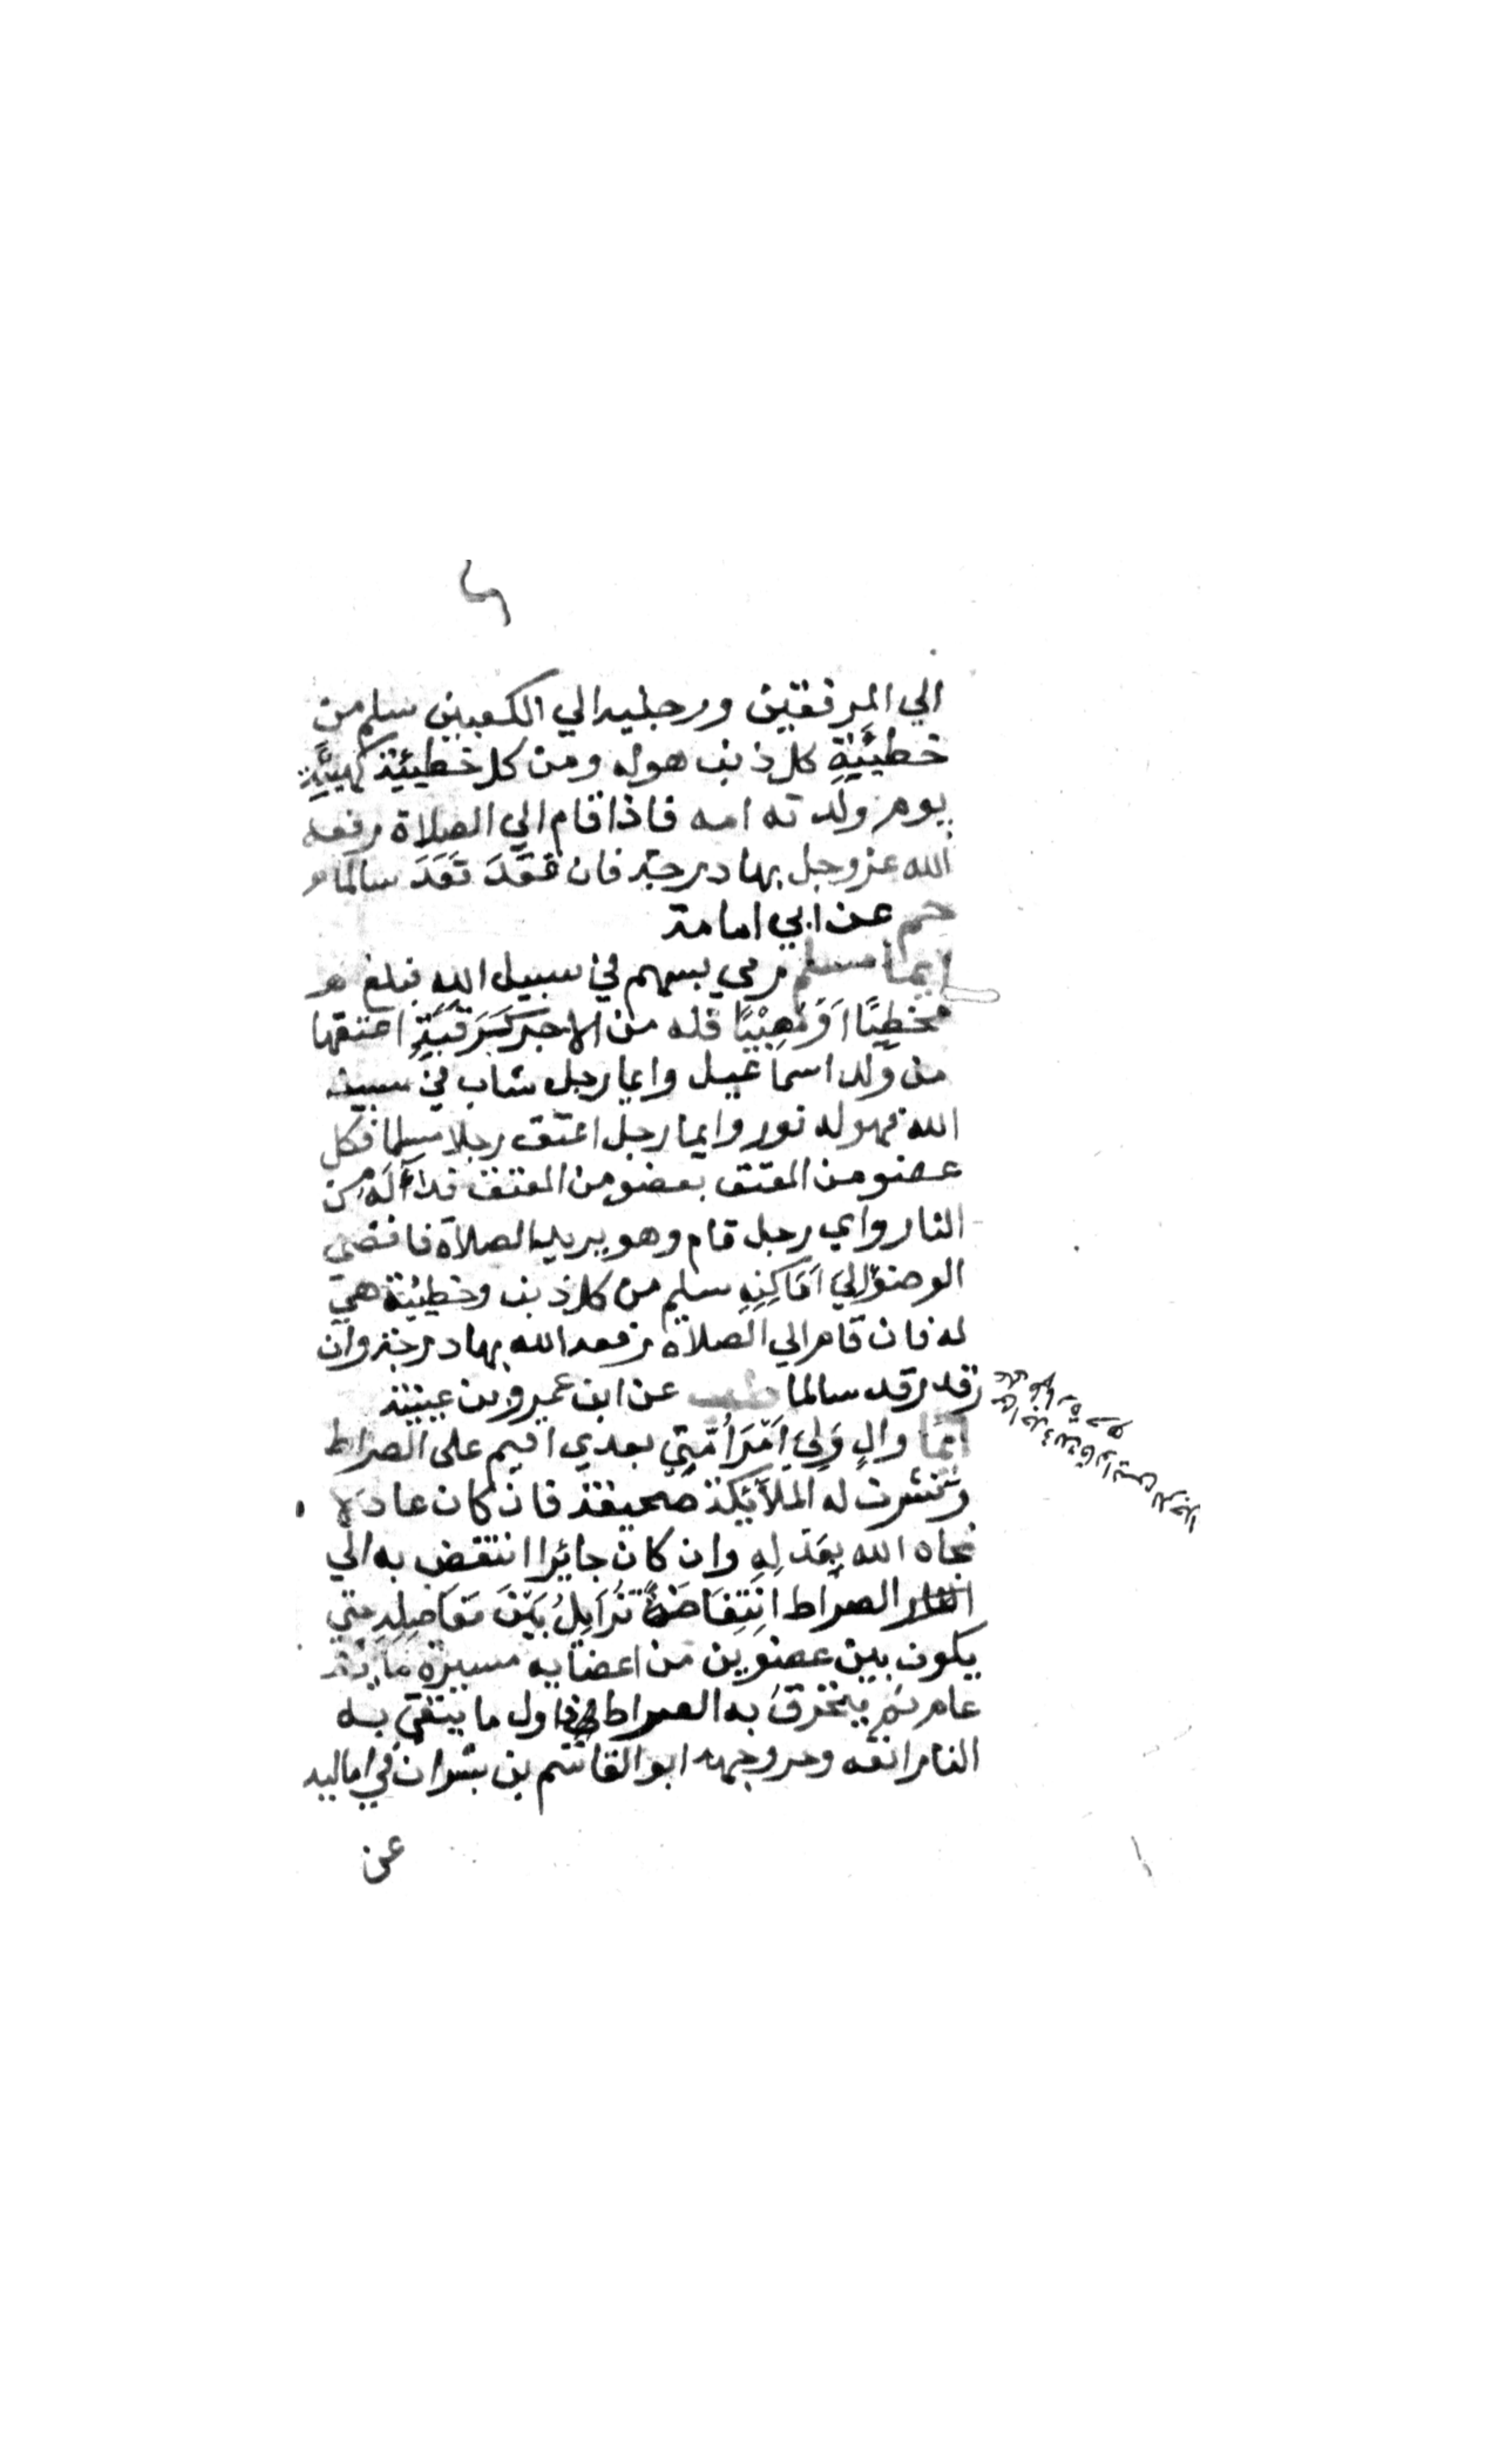 الي المرفقين ورجليه الي الكعبين سلم من
خطيئة كل ذنب هو له ومن كل خطيئة كهيئة
يوم ولدته امه فاذا قام الي الصلاة رفعه
الله عز وجل بها درجة فان قعد قعد سالما
حم عن ابي امامة
ايما مسلم رمي بسهم في سبيل الله فبلغ
مخطيًا اَوْ مُصِيْبًا فله من الاجر كَرَقَبَةٍ اعتقها
من ولد اسماعيل وايما رجل شاب في سبيل
الله فهو له نور وايما رجل اعتق رجلا مسلما فكل
عضو من المعتق بعضو من المعتق فداءٌ لَه من
النار واي رجل قام وهو يريد الصلاة فافضي
الوضوَ الي اَمَاكِنِهِ سلم من كل ذنب وخطيئة هي
له فان قام الي الصلاة رفعه الله بها درجة وان
رقد رقد سالما طب عن ابن عمرو بن عبسة
ايّما والٍ وَلِيَ اَمْرَ اُمّتِي بعدي اقيم على الصراط
ونشرت له الملآئكة صحيفته فان كان عادلا
نجاه الله بِعَدْلِهِ وان كان جائرا انتقض به الي
النار الصراط اِنْتِفَاضَةً تُزَايِلُ بَيْنَ مَفَاصِلِهِ حتي
يكون بين عضوين من اعضايه مسيرة ماية
عام ثم ينخرق به الصراط فاول ما يتقي به
النار انفه وحر وجهه ابو القاسم بن بشران في اماليه
عن